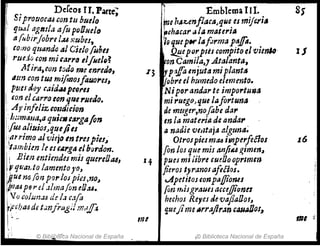 Deseos II. Parte,
Si prouocas con tu buelo
qual agnila a su polluelo
a subir sobre las nubes,
como quando al Cielo subes
ruedo con mi carro el suelo?
Atina, con todo me enredo,
aun con tus mismos fauores,
pues doy caidas peores
con el carro con que ruedo.
Ay infeliz condicion
humana, a quien carga son
sus aliuios, que si es
arrimo al viejo en tres pies,
tambien le es carga el bordon.
Bien entiendes mis querellas,
y qual te lamento yo,
que no son por los pies, no,
por el alma son ellas.
No colunas de la casa
hechas de tan fragil massa
me
© Biblioteca Nacional de España
Emblema III.
85
me hazen flaca, que es miseria
achacar a la materia
lo que por la forma passa.
Que por pies compito el viento
con Camila, y Atalanta,
y passa enjuta mi planta
sobre el humedo elemento.
Ni por andar te importuna
mi ruego, que la fortuna
de muger, no sabe dar
en la materia de andar
a nadie ventaja alguna.
Otros pies mas imperfectos
son los que mis ansias gimen,
pues mi libre cuello oprimen
fieros tyranos afectos.
Apetitos con passiones
son mis graues accessiones
hechos Reyes de vassallos,
que si me arrastran cauallos,
me
13
14
15
16
© Biblioteca Nacional de España